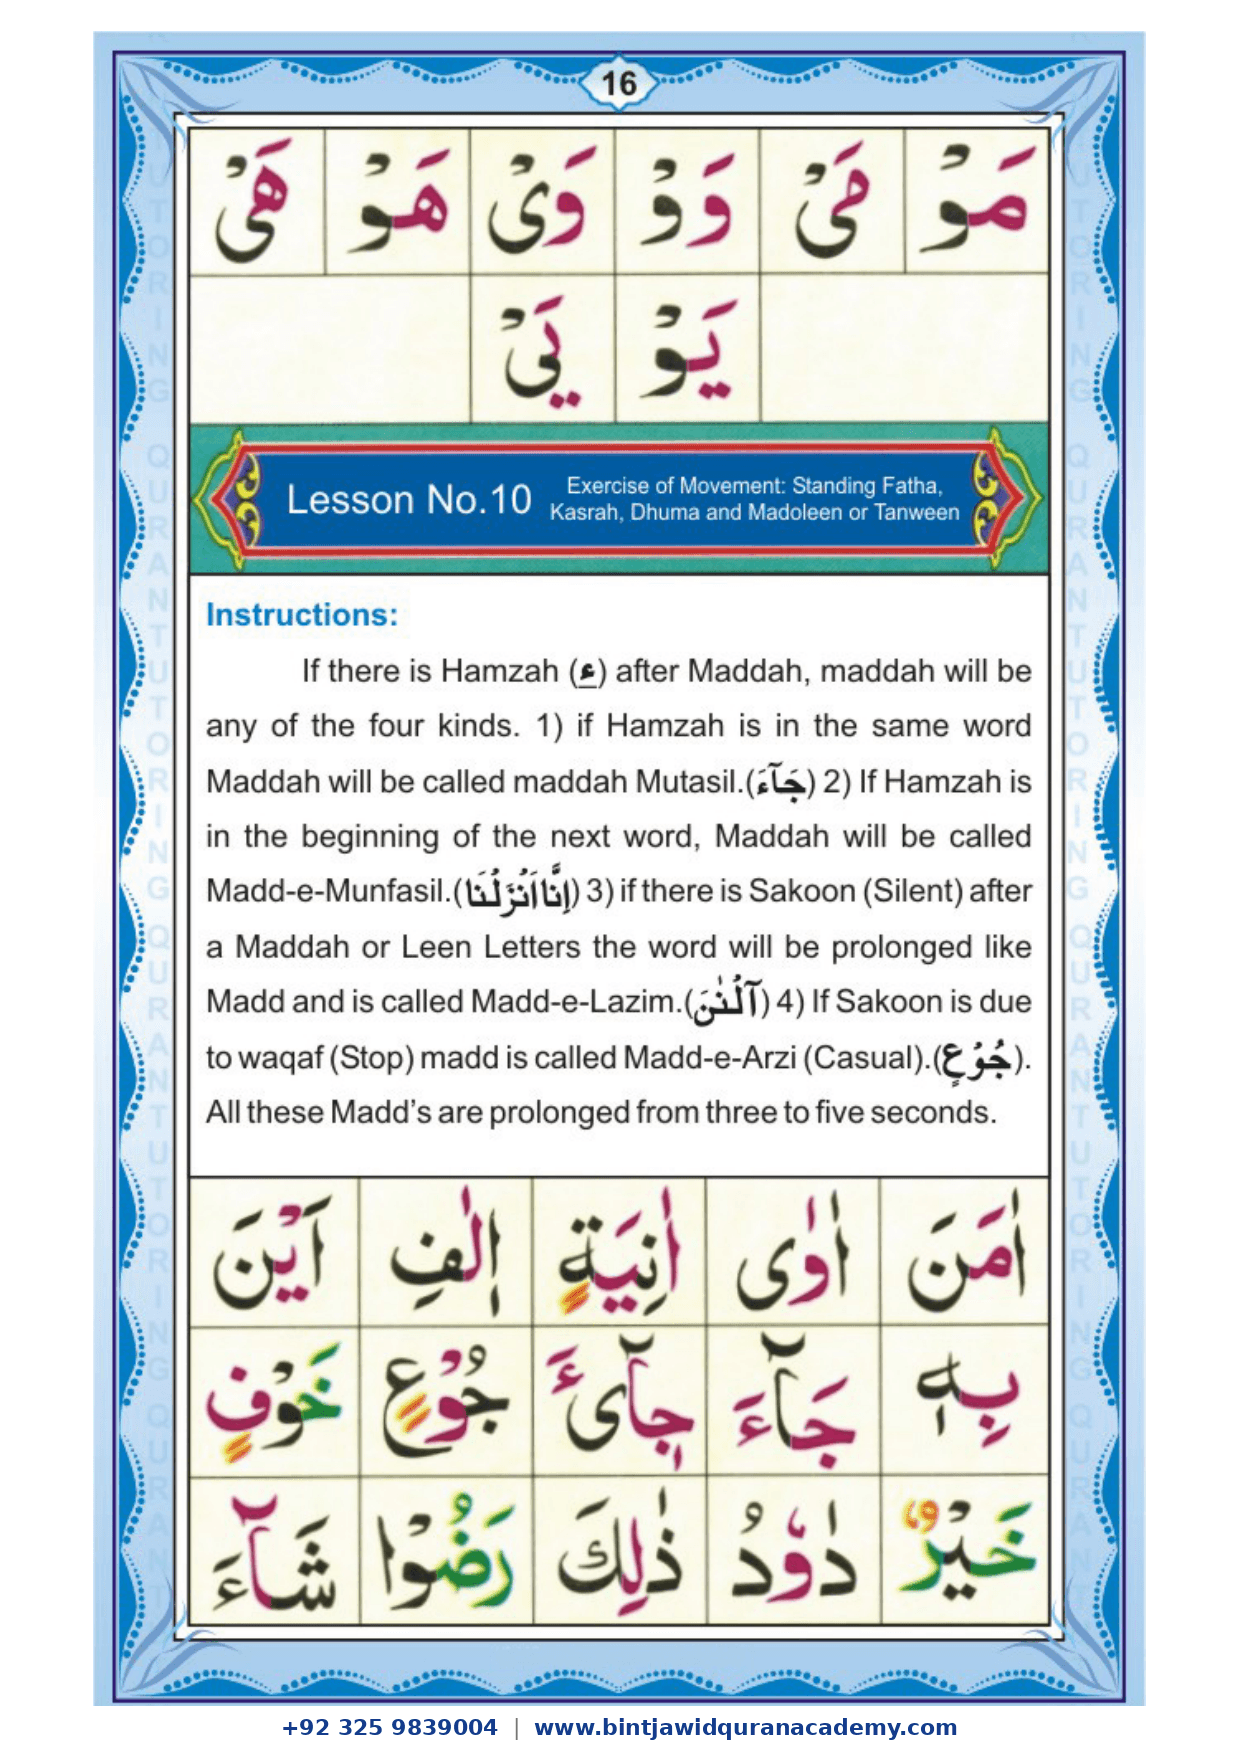 16
مَوْ مَیْ وَوْ وَیْ هَوْ هَیْ
یَوْ یَیْ
Lesson No.10
Exercise of Movement: Standing Fatha,
Kasrah, Dhuma and Madoleen or Tanween
Instructions:
If there is Hamzah (ء) after Maddah, maddah will be
any of the four kinds. 1) if Hamzah is in the same word
Maddah will be called maddah Mutasil.(جَآءَ) 2) If Hamzah is
in the beginning of the next word, Maddah will be called
Madd-e-Munfasil.(اِنَّا اَنْزَلْنَا) 3) if there is Sakoon (Silent) after
a Maddah or Leen Letters the word will be prolonged like
Madd and is called Madd-e-Lazim.(آلْـٰٔنَ) 4) If Sakoon is due
to waqaf (Stop) madd is called Madd-e-Arzi (Casual).(جُوْعٍ).
All these Madd's are prolonged from three to five seconds.
اٰمَنَ اٰوٰی اٰنِیَةٍ اٖلٰفِ اَیْنَ
بِهٖ جَآءَ جِآیْءَ جُوْعٍ خَوْفٍ
خَیْرٌ دٰوٗدُ ذٰلِكَ رَضُوْا شَآءَ
QURAN TUTORING
+92 325 9839004 | www.bintjawidquranacademy.com